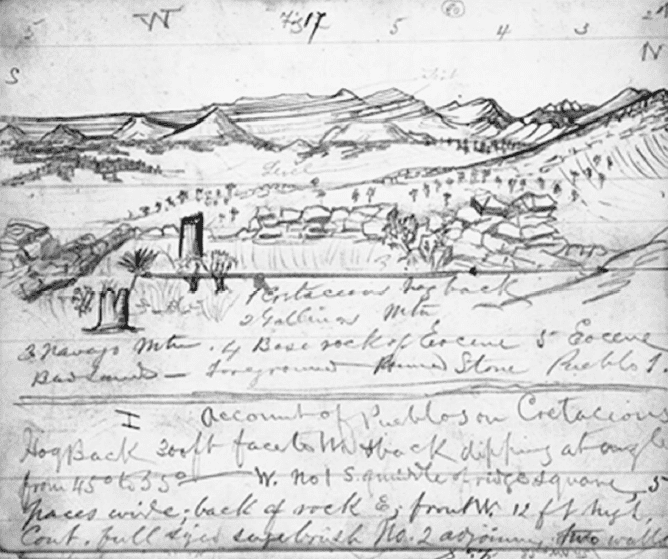 W Fig 17 5 80 4 3 2
S N
1 Cretaceous hog back
2 Gallinas Mtn
3 Navajo Mtn. 4 Base rock of Eocene 5 Eocene
Bad Lands — foreground Ruined Stone Pueblo
I account of Pueblos on Cretacious
Hog Back 300 ft face to W & back dipping at ang
from 45° to 55° — W. No 1 S. middle of ridge square, 5
paces wide; back of rock E; front W. 12 ft high,
Cont. full sized sage brush No. 2 adjoining two walls